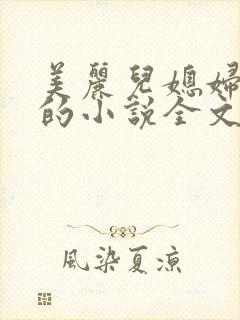 美麗兒媳婦
的小說全文
風染夏涼